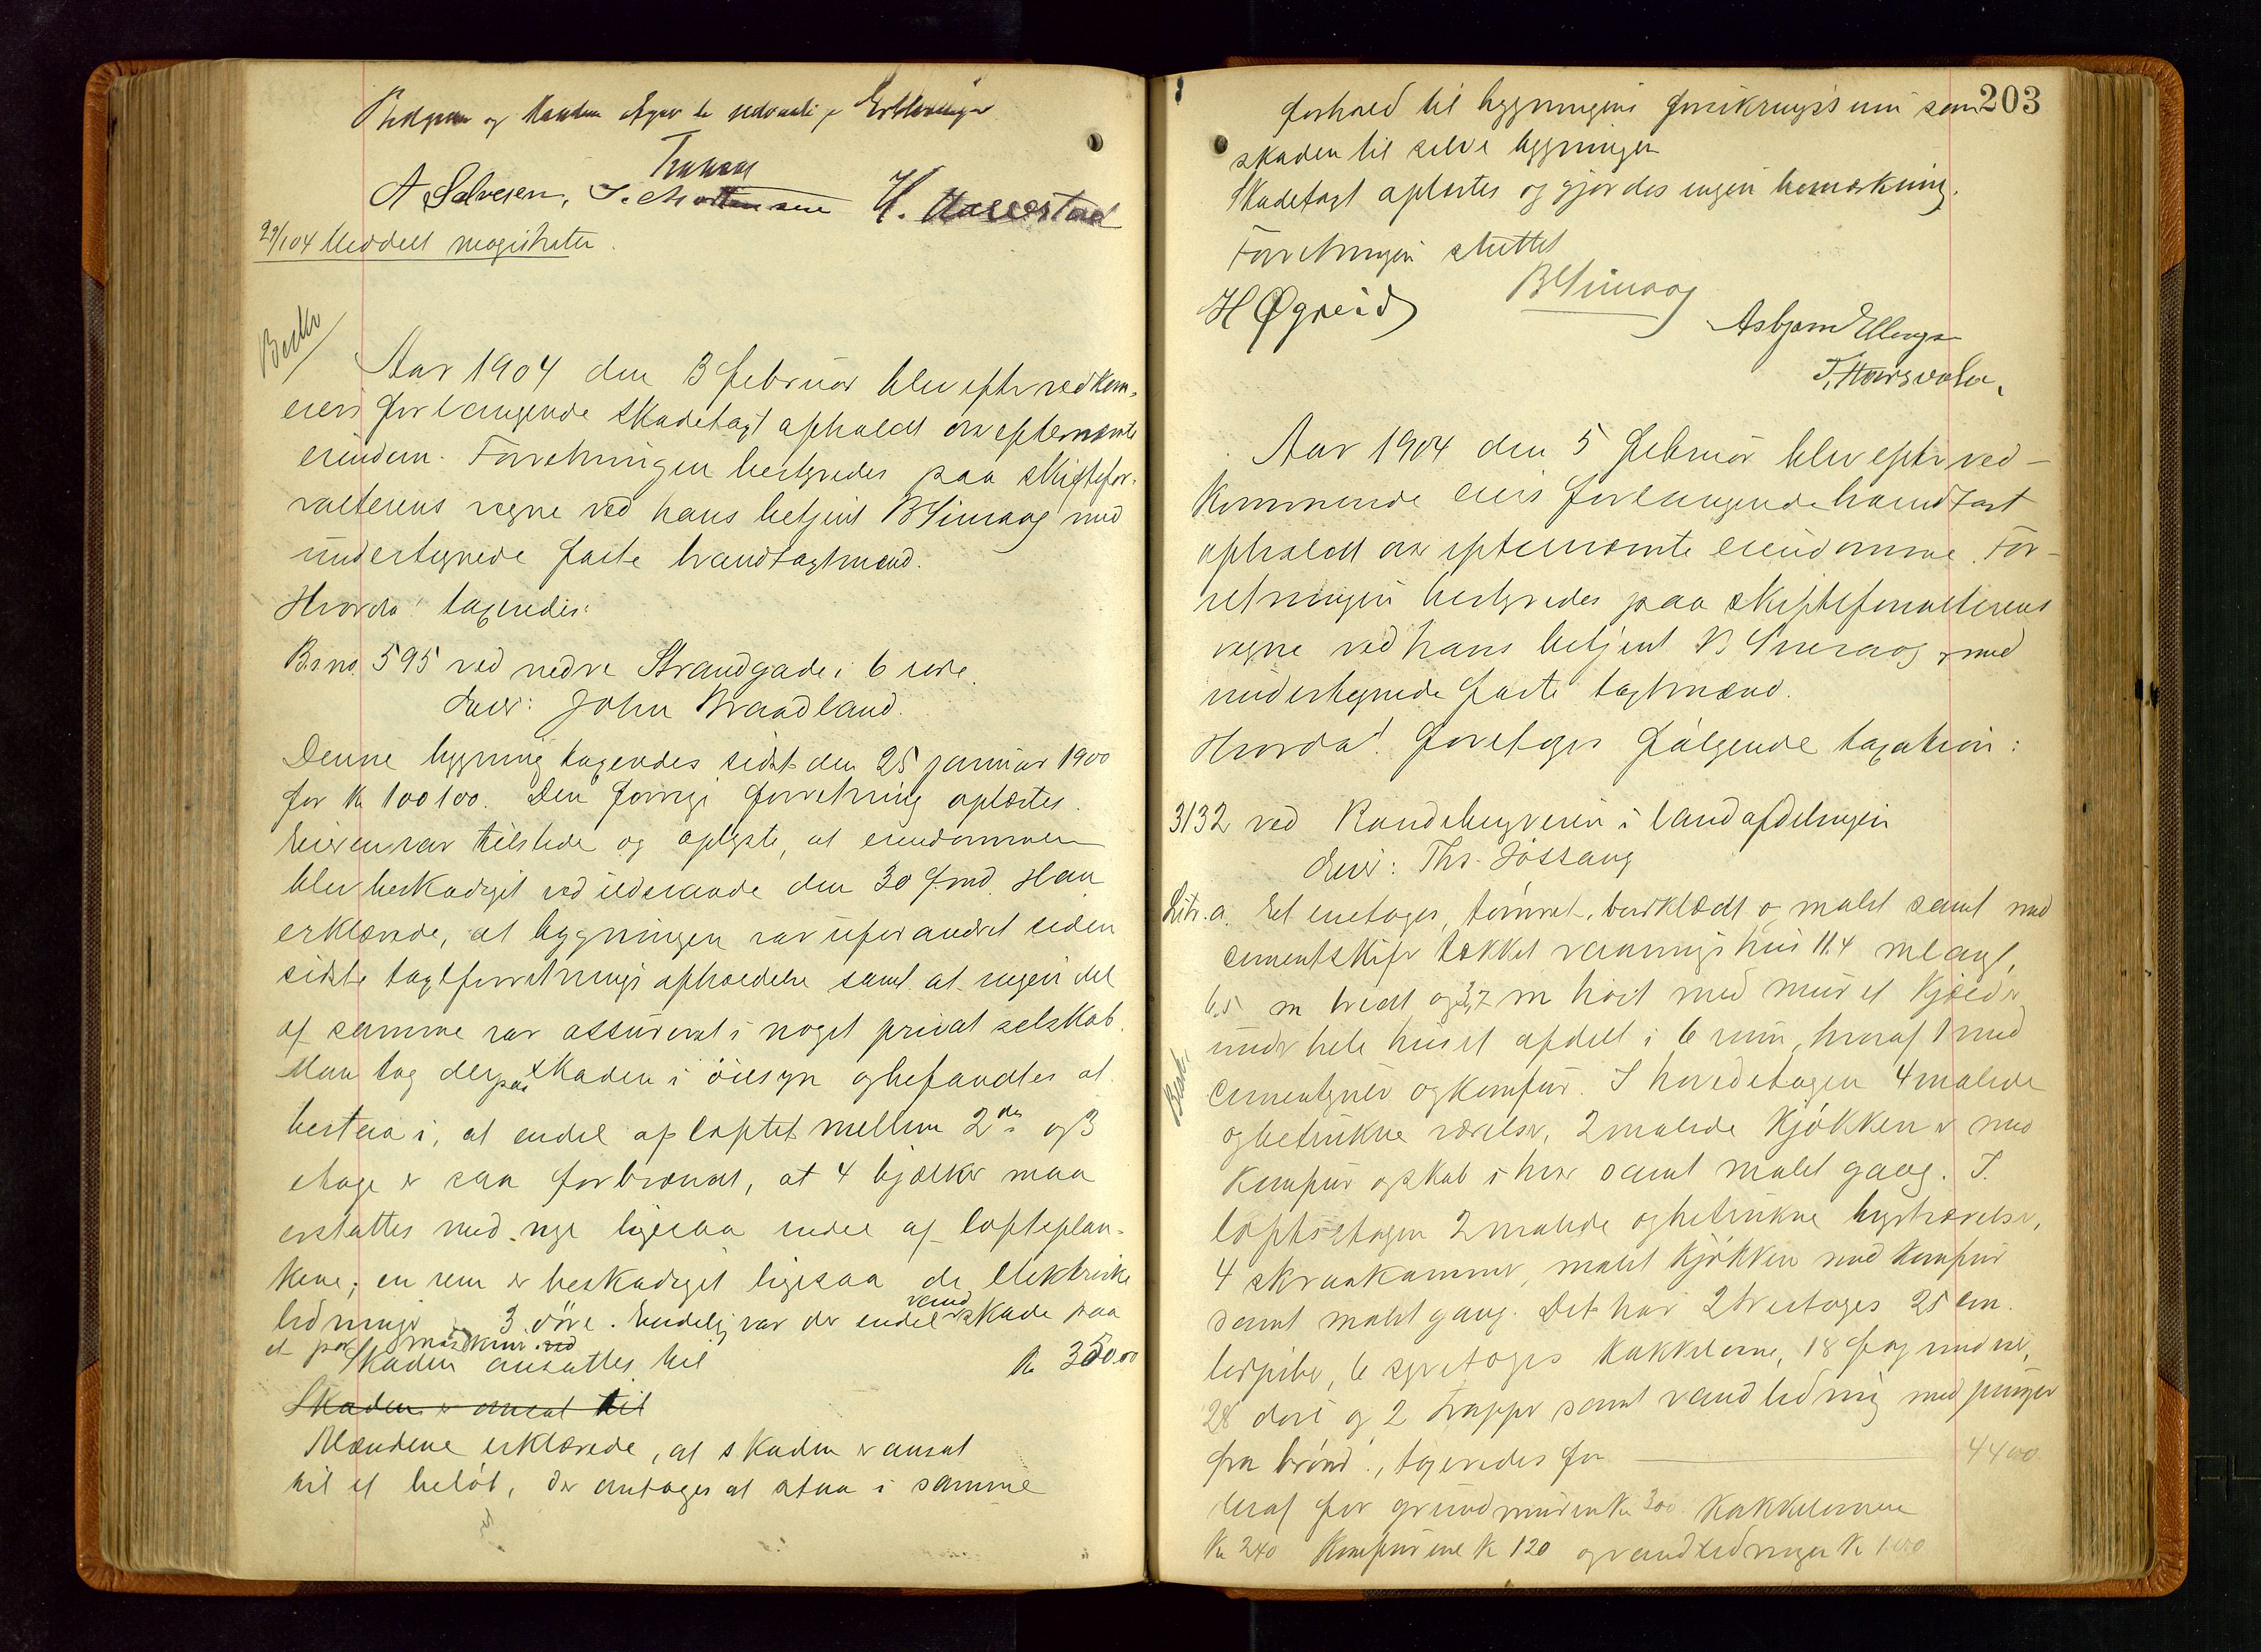 og
Tranaas
A Salvesen, H. Haverstad
29/1 04 Meddelt magistraten.
Aar 1904 den 3 februar blev efter vedkom.
eiers forlangende skadetaxt afholdt over efternævnte
eiendom. Forretningen bestyredes paa skiftefor-
valterens vegne ved hans betjent B Simaog med
undertegnede faste brandtaxtmænd.
Hvorda! taxeredes:
B.no. 595 ved nedre Strandgade i 6 rode.
Eier: John Braadland.
Denne bygning taxeredes sidst den 25 januar 1900
for kr 100100. Den forrige forretning oplæstes.
Eieren var tilstede og oplyste, at eiendommen
blev beskadiget ved ildsvaade den 30 f.md. Han
erklærede, at bygningen var uforandret siden
sidste taxtforretnings afholdelse samt at ingen del
af samme var assureret i noget privat selskab.
Man tog derpaa skaden i øiesyn og befandtes at
bestaa i, at endel af loftet mellem 2den og 3
etage er saa forbrændt, at 4 bjælker maa
erstattes med nye ligesaa endel af lofteplan-
kene; en rem er beskadiget ligesaa de elektriske
ledninger og 3 döre. Endelig var der endel vand skade paa
et par
Skaden ansattes til kr 350.00
Skaden er ansat til
Mændene erklærede, at skaden er ansat
til et beløb, der antages at staa i samme
203
forhold til bygningens forsikringssum som
skaden til selve bygningen
Skadetaxt oplæstes og gjordes ingen bemærkning.
Forretningen sluttet
B Simaog
H Øgreid
Asbjørn Ellingsen
T. Haarsvolen.
Aar 1904 den 5 februar blev efter ved-
kommende eiers forlangende brandtaxt
afholdt over efternævnte eiendomme. For-
retningen bestyredes paa skifteforvalterens
vegne ved hans betjent B Simaog med
undertegnede faste taxtmænd.
Hvorda! foretoges følgende taxation:
3132 ved Randebergveien i Landafdelingen
Eier: Ths. Jøssang
Litr. a. Et enetages, tømret, bordklædt og malet samt med
cementskifer tækket vaaningshus 11.4 m langt,
6.5 m bredt og 3,7 m høit med muret kjælder
under hele huset afdelt i 6 rum, hvoraf 1 med
cementgulv og komfur. I hovedetagen 4 malede
og betrukne værelser, 2 malede kjøkkener med
komfur og skab i hver samt malet gang. I
loftsetagen 2 malede og betrukne kvistværelser,
4 skraakammer, malet kjøkken med komfur
samt malet gang. Det har 2 tvertages 25 cm.
ledpiber, 6 syvetages kakkelovne, 18 fag vinduer,
28 døre og 2 trapper samt vandledning med pumper
fra brønd, taxeredes for 4400
deraf for grundmuren kr 300 kakkelovnene
kr 240 komfurene kr 120 og vandledningen kr 100